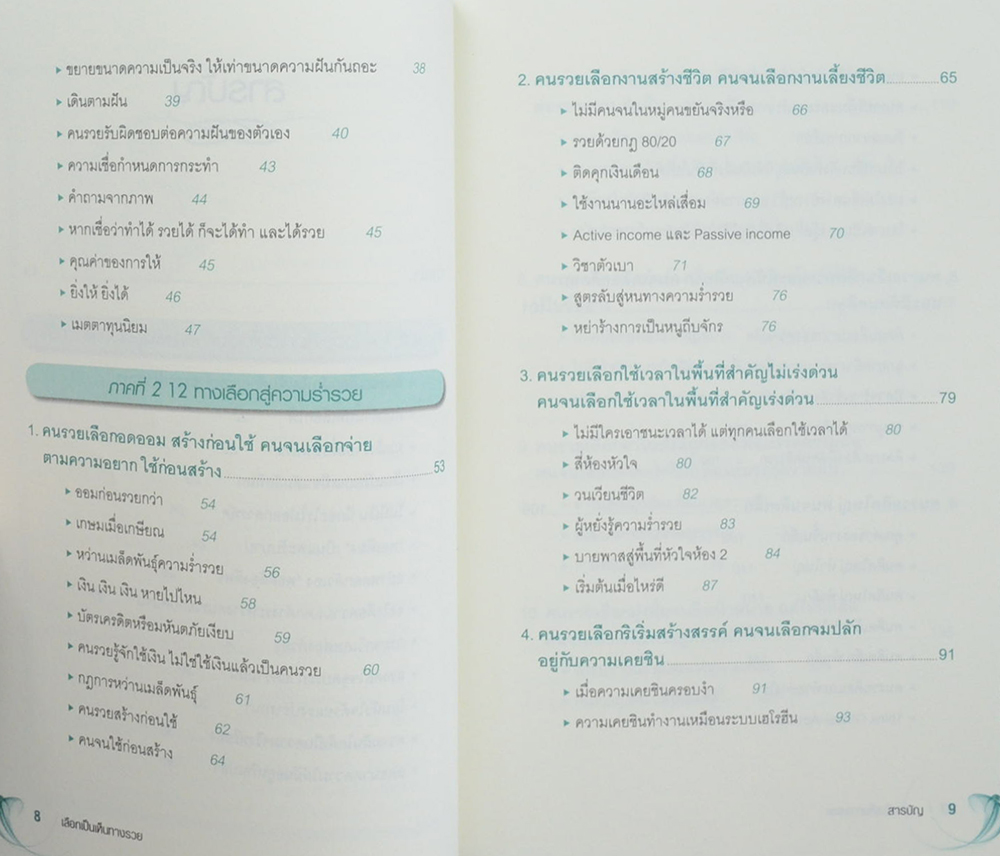 ▸ ขยายขนาดความเป็นจริง ให้เท่าขนาดความฝันกันถอะ 38
▸ เดินตามฝัน 39
▸ คนรวยรับผิดชอบต่อความฝันของตัวเอง 40
▸ ความเชื่อกำหนดการกระทำ 43
▸ คำถามจากภาพ 44
▸ หากเชื่อว่าทำได้ รวยได้ ก็จะได้ทำ และได้รวย 45
▸ คุณค่าของการให้ 45
▸ ยิ่งให้ ยิ่งได้ 46
▸ เมตตาทุนนิยม 47
ภาคที่ 2 12 ทางเลือกสู่ความร่ำรวย
1. คนรวยเลือกอดออม สร้างก่อนใช้ คนจนเลือกจ่าย
ตามความอยาก ใช้ก่อนสร้าง 53
▸ ออมก่อนรวยกว่า 54
▸ เกษมเมื่อเกษียณ 54
▸ หว่านเมล็ดพันธุ์ความร่ำรวย 56
▸ เงิน เงิน เงิน หายไปไหน 58
▸ บัตรเครดิตหรือมหันตภัยเงียบ 59
▸ คนรวยรู้จักใช้เงิน ไม่ใช่ใช้เงินแล้วเป็นคนรวย 60
▸ กฎการหว่านเมล็ดพันธุ์ 61
▸ คนรวยสร้างก่อนใช้ 62
▸ คนจนใช้ก่อนสร้าง 64
8 เลือกเป็นเดินทางรวย
2. คนรวยเลือกงานสร้างชีวิต คนจนเลือกงานเลี้ยงชีวิต 65
▸ ไม่มีคนจนในหมู่คนขยันจริงหรือ 66
▸ รวยด้วยกฎ 80/20 67
▸ ติดคุกเงินเดือน 68
▸ ใช้งานนานอะไหล่เสื่อม 69
▸ Active income และ Passive income 70
▸ วิชาตัวเบา 71
▸ สูตรลับสู่หนทางความร่ำรวย 76
▸ หย่าร้างการเป็นหนูถีบจักร 76
3. คนรวยเลือกใช้เวลาในพื้นที่สำคัญไม่เร่งด่วน
คนจนเลือกใช้เวลาในพื้นที่สำคัญเร่งด่วน 79
▸ ไม่มีใครเอาชนะเวลาได้ แต่ทุกคนเลือกใช้เวลาได้ 80
▸ สี่ห้องหัวใจ 80
▸ วนเวียนชีวิต 82
▸ ผู้หยั่งรู้ความร่ำรวย 83
▸ บายพาสสู่พื้นที่หัวใจห้อง 2 84
▸ เริ่มต้นเมื่อไหร่ดี 87
4. คนรวยเลือกริเริ่มสร้างสรรค์ คนจนเลือกจมปลัก
อยู่กับความเคยชิน 91
▸ เมื่อความเคยชินครอบงำ 91
▸ ความเคยชินทำงานเหมือนระบบเฮโรฮีน 93
สารบัญ 9